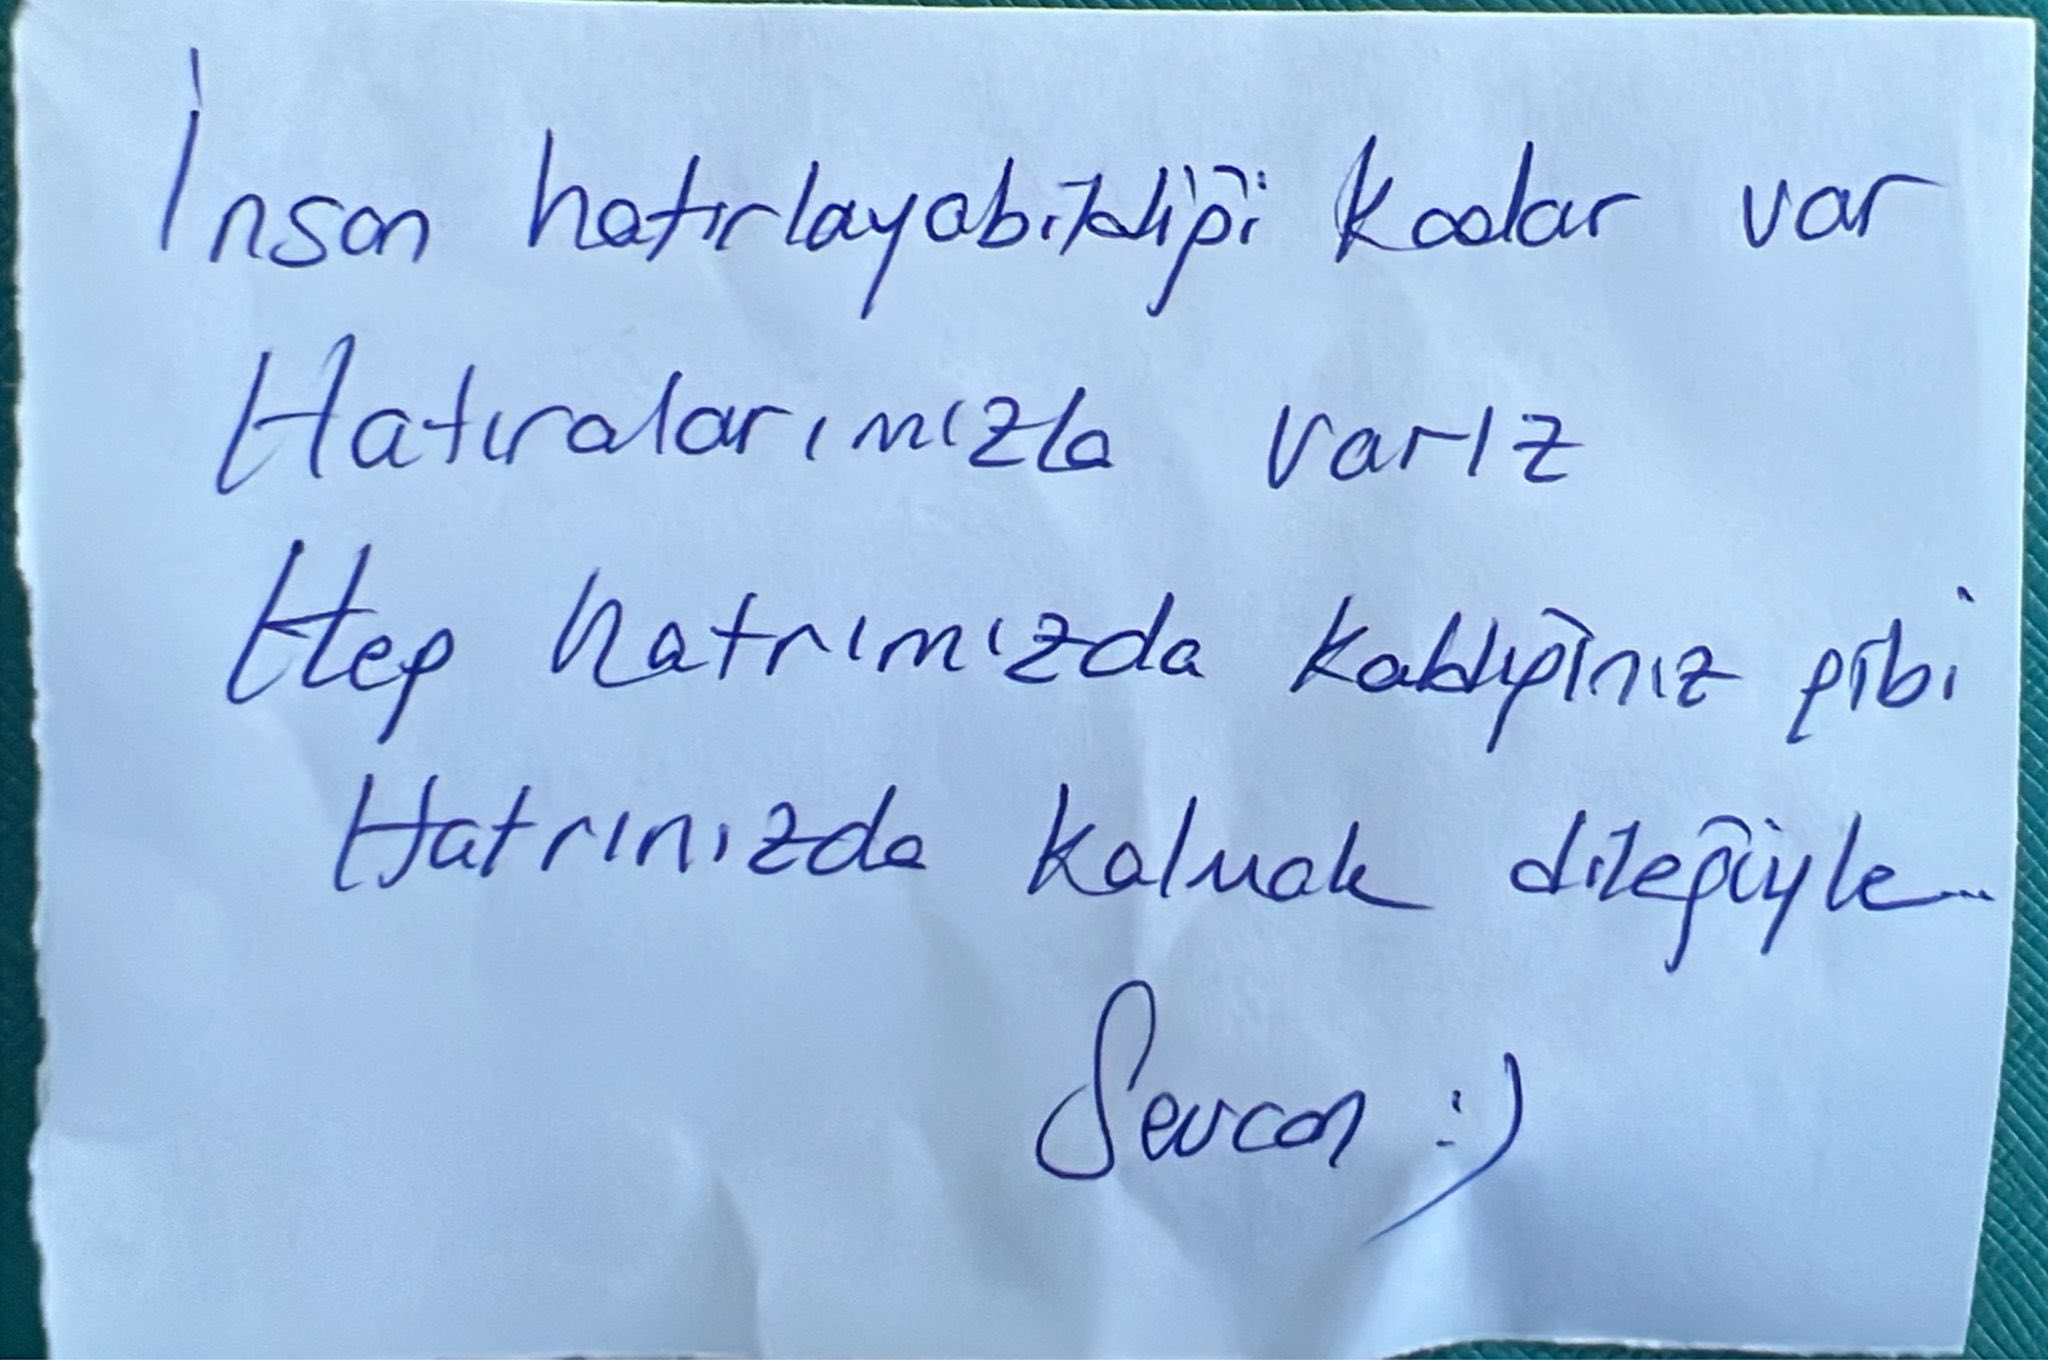 İnsan hatırlayabildiği kadar var
Hatıralarımızla varız
Hep hatrımızda kaldığınız gibi
Hatrınızda kalmak dileğiyle...
Sevcan :)